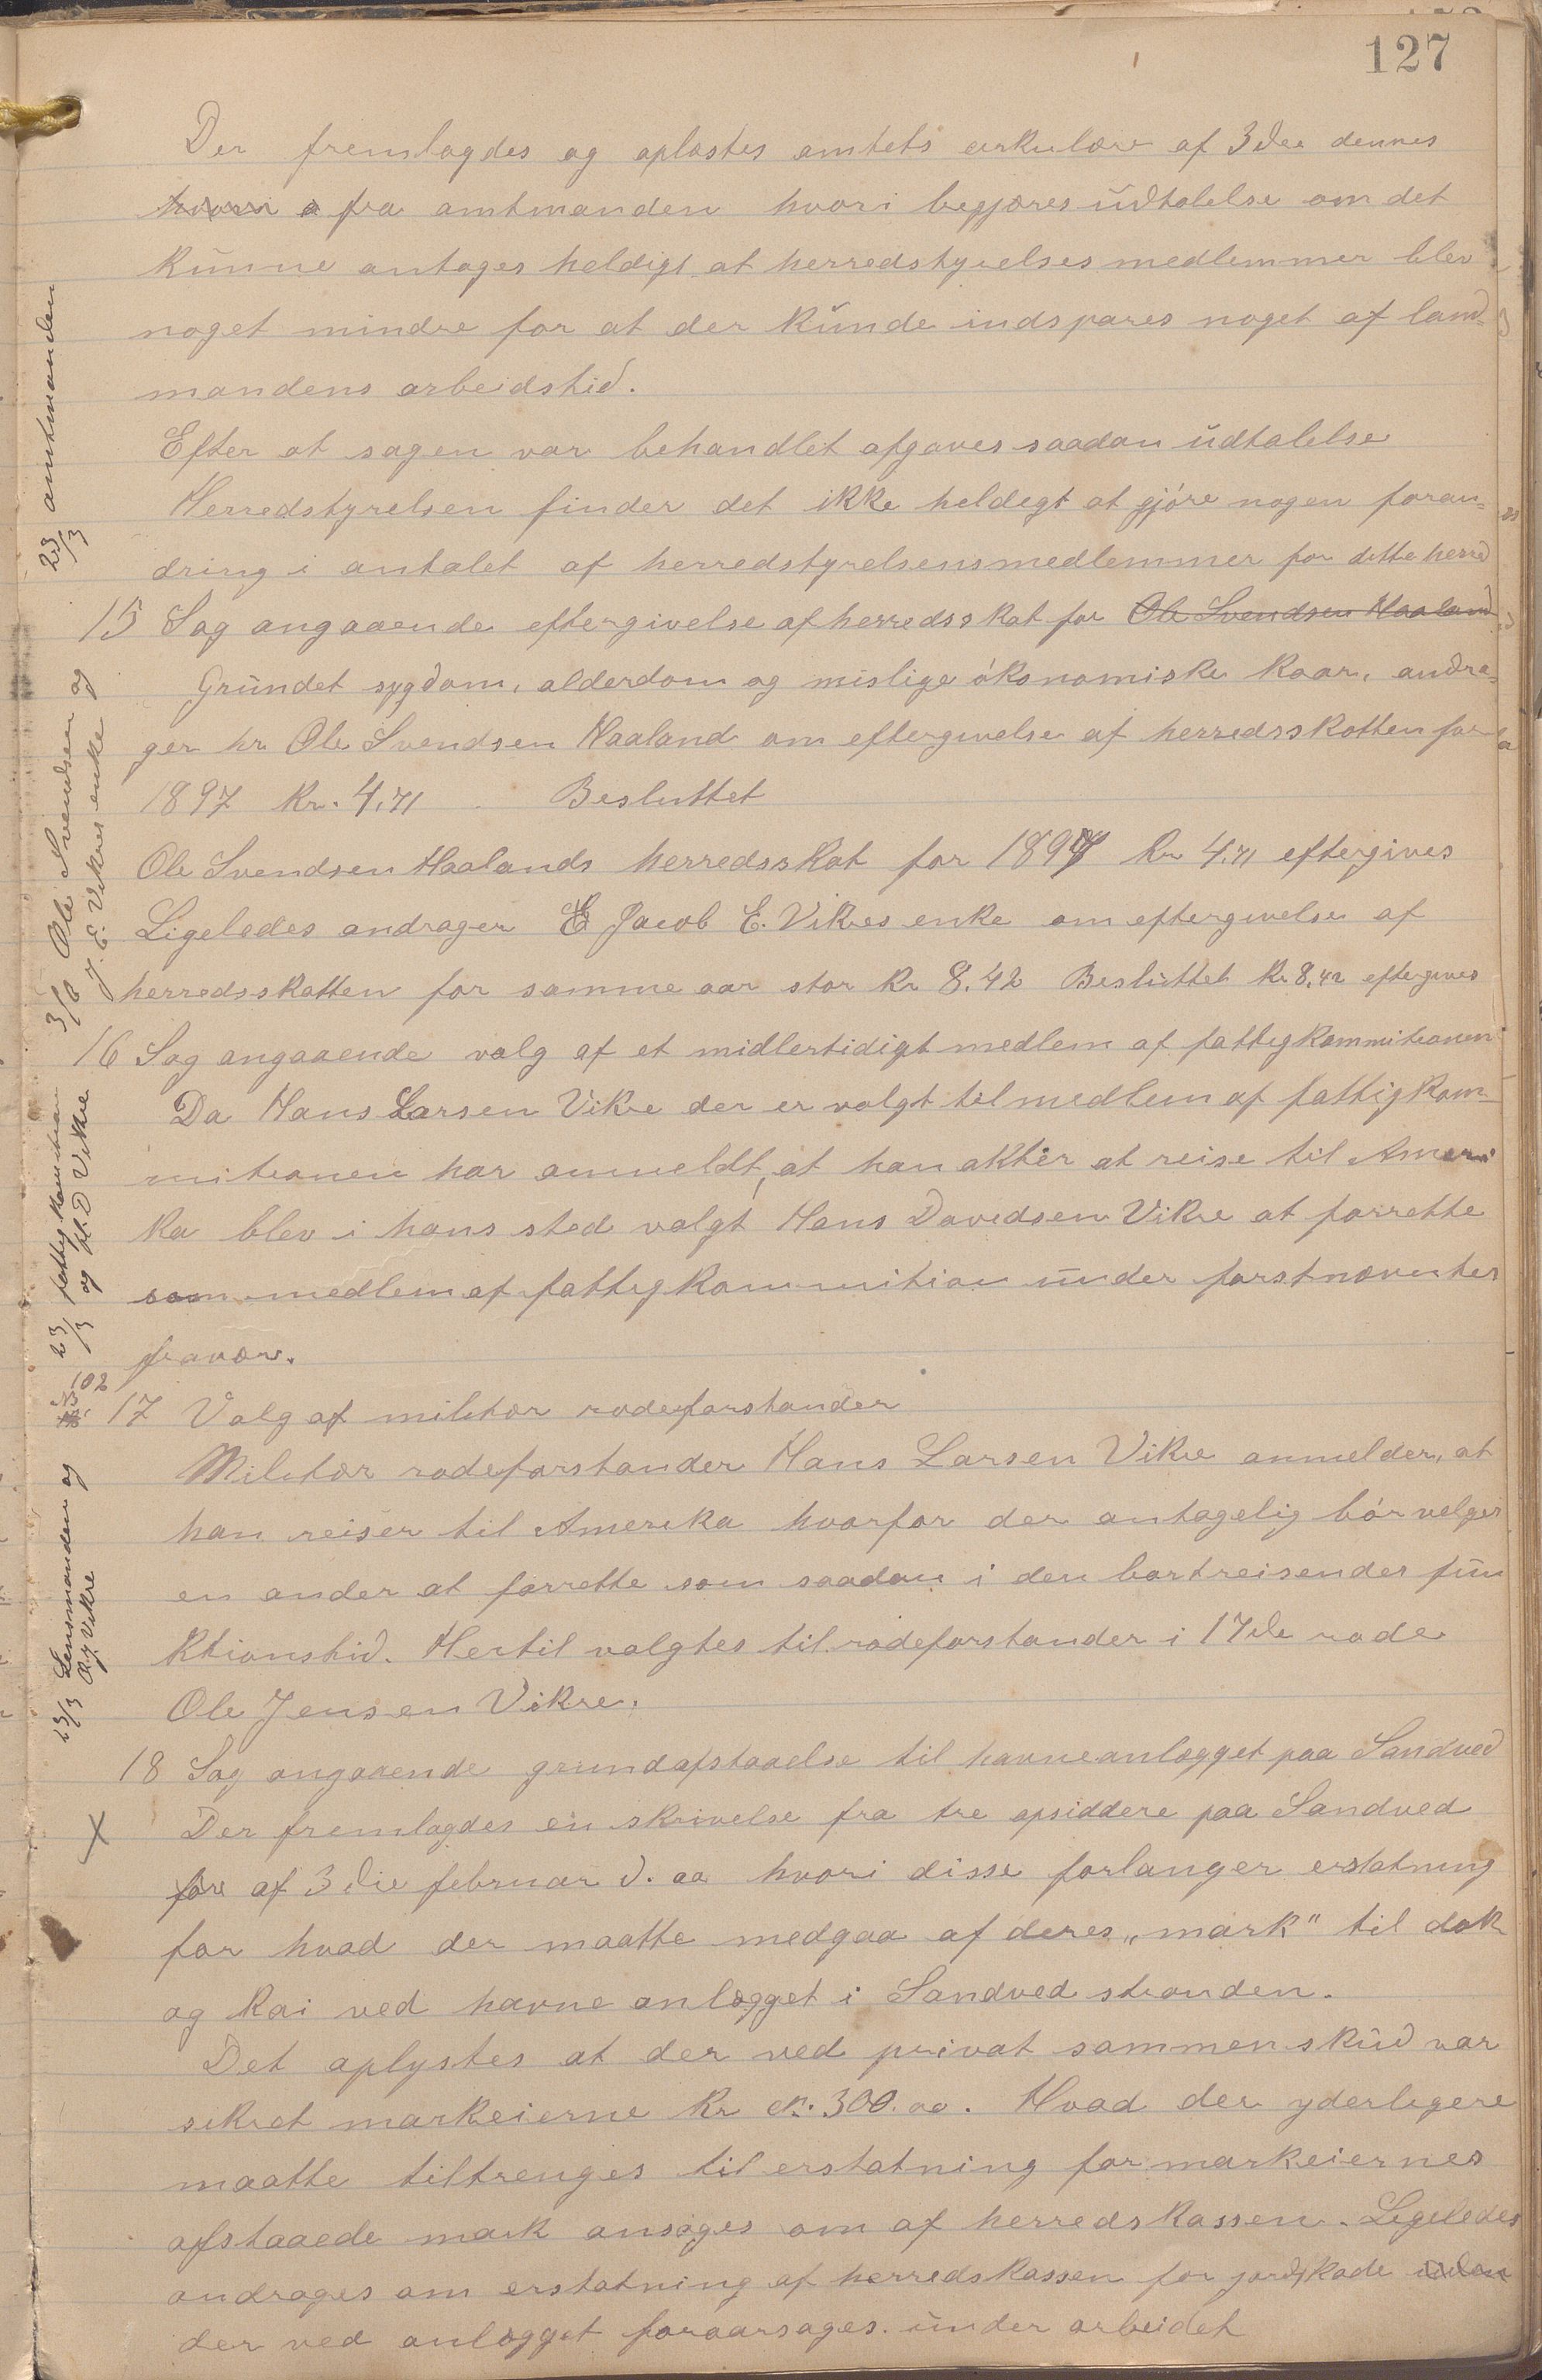 127
Der fremlagdes og oplæstes amtets cirkulære af 3die dennes
hvori a fra amtmanden hvori begjæres udtalelse om det
kunne antages heldigt at herredstyrelsesmedlemmer blev
noget mindre for at der kunde indspares noget af land-
mandens arbeidstid.
23/3 amtmanden
Efter at sagen var behandlet afgaves saadan udtalelse
Herredstyrelsen finder det ikke heldegt at gjöre nogen foran-
dring i antalet af herredstyrelsensmedlemmer for dette herred
15 Sag angaaende eftergivelse af herredsskat for Ole Svendsen Haaland
Grundet sygdom, alderdom og mislige ökonomiske kaar, andra-
ger hr Ole Svendsen Haaland om eftergivelse af herredsskatten for
1897 Kr. 4,71 Besluttet
Ole Svendsen Haalands herredsskat for 1897 Kr 4,71 eftergives
Ligeledes andrager E Jacob E. Vikres enke om eftergivelse af
herredsskatten for samme aar stor Kr 8.42 Besluttet Kr. 8,42 eftergives
3/6 Ole Svendsen og
J. E. Vikres enke
16 Sag angaaende valg af et midlertidigt medlem af fattigkommitionen
Da Hans Larsen Vikre der er valgt til medlem af fattigkom-
mitionen har anmeldt, at han akter at reise til Ameri
ka blev i hans sted valgt Hans Davidsen Vikre at forrette
som medlem af fattigkommition under förstnævntes
fravær.
23/3 fattigkomition
og H. D Vikre
102
17 Valg af militær rodeforstander
Militær rodeforstander Hans Larsen Vikre anmelder, at
han reiser til Amerika hvorfor der antagelig bör velges
en ander at forrette som saadan i den bortreisendes fun
ktionstid. Hertil valgtes til rodeforstander i 17de rode
Ole Jensen Vikre.
23/3 Lensmanden og
O. J. Vikre
18 Sag angaaende grundafstaaelse til havneanlægget paa Sandved
X Der fremlagdes en skrivelse fra tre opsiddere paa Sandved
före af 3die februar d. aa hvori disse forlanger erstatning
for hvad der maatte medgaa af deres „mark" til dok
og kai ved havne anlægget i Sandved stranden.
Det oplystes at der ved privat sammenskud var
sikret markeierne Kr ck. 300.00. Hvad der yderligere
maatte tiltrenges til erstatning for markeiernes
afstaaede mark ansöges om af herredskassen. Ligeledes
andrages om erstatning af herredskassen for jordskade uden
der ved anlægget foraarsages. under arbeidet